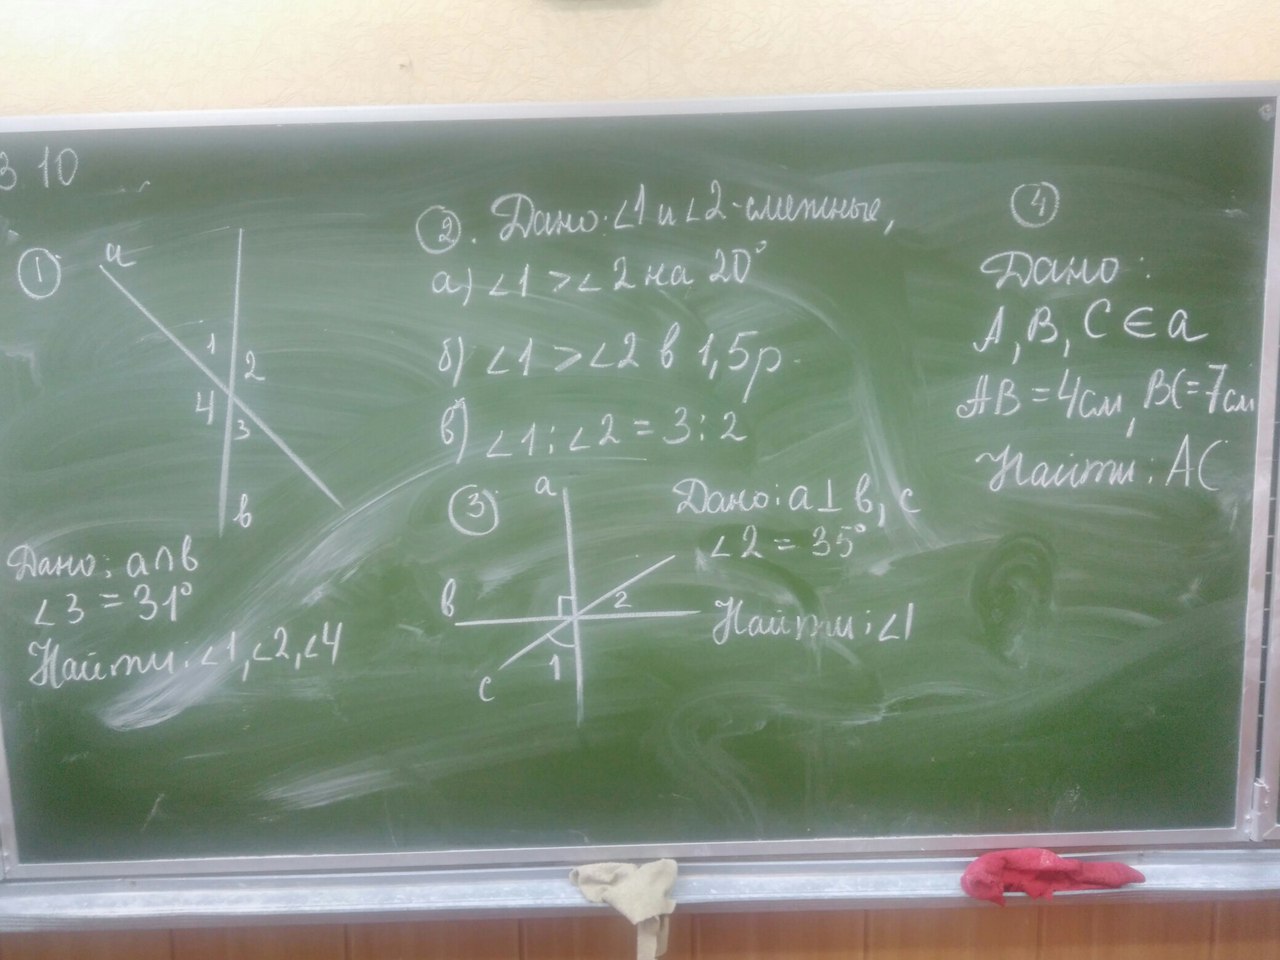 В 10
①
a
1
2
4
3
в
Дано: a∩в
∠3 = 31°
Найти: ∠1, ∠2, ∠4
②. Дано: ∠1 и ∠2 - смежные,
а) ∠1 > ∠2 на 20°
б) ∠1 > ∠2 в 1,5 р.
в) ∠1 : ∠2 = 3 : 2
③
a
Дано: a ⊥ в, с
∠2 = 35°
в
2
Найти: ∠1
1
с
④
Дано:
A, B, C ∈ a
AB = 4см, BC = 7см
Найти: AC